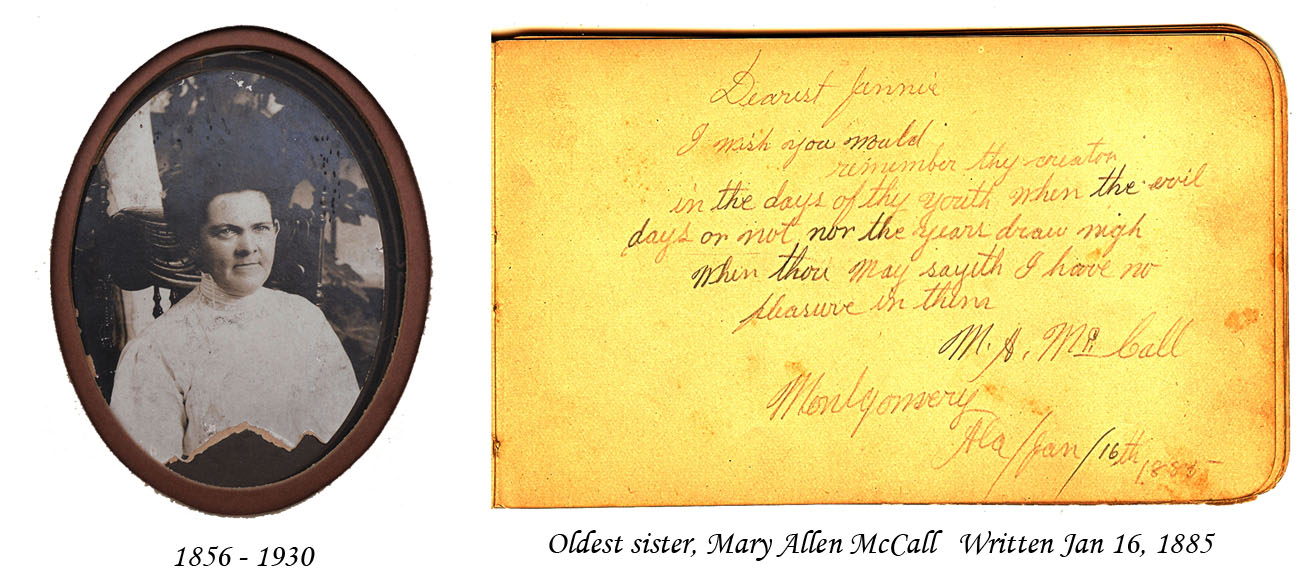 Dearest Jannie
I wish you would
remember thy creator
in the days of thy youth when the evil
days or not nor the years draw nigh
when thou may sayith I have no
pleasure in them
M. A. Mc Call
Montgomery
Ala / Jan / 16th 1885
1856 - 1930
Oldest sister, Mary Allen McCall Written Jan 16, 1885